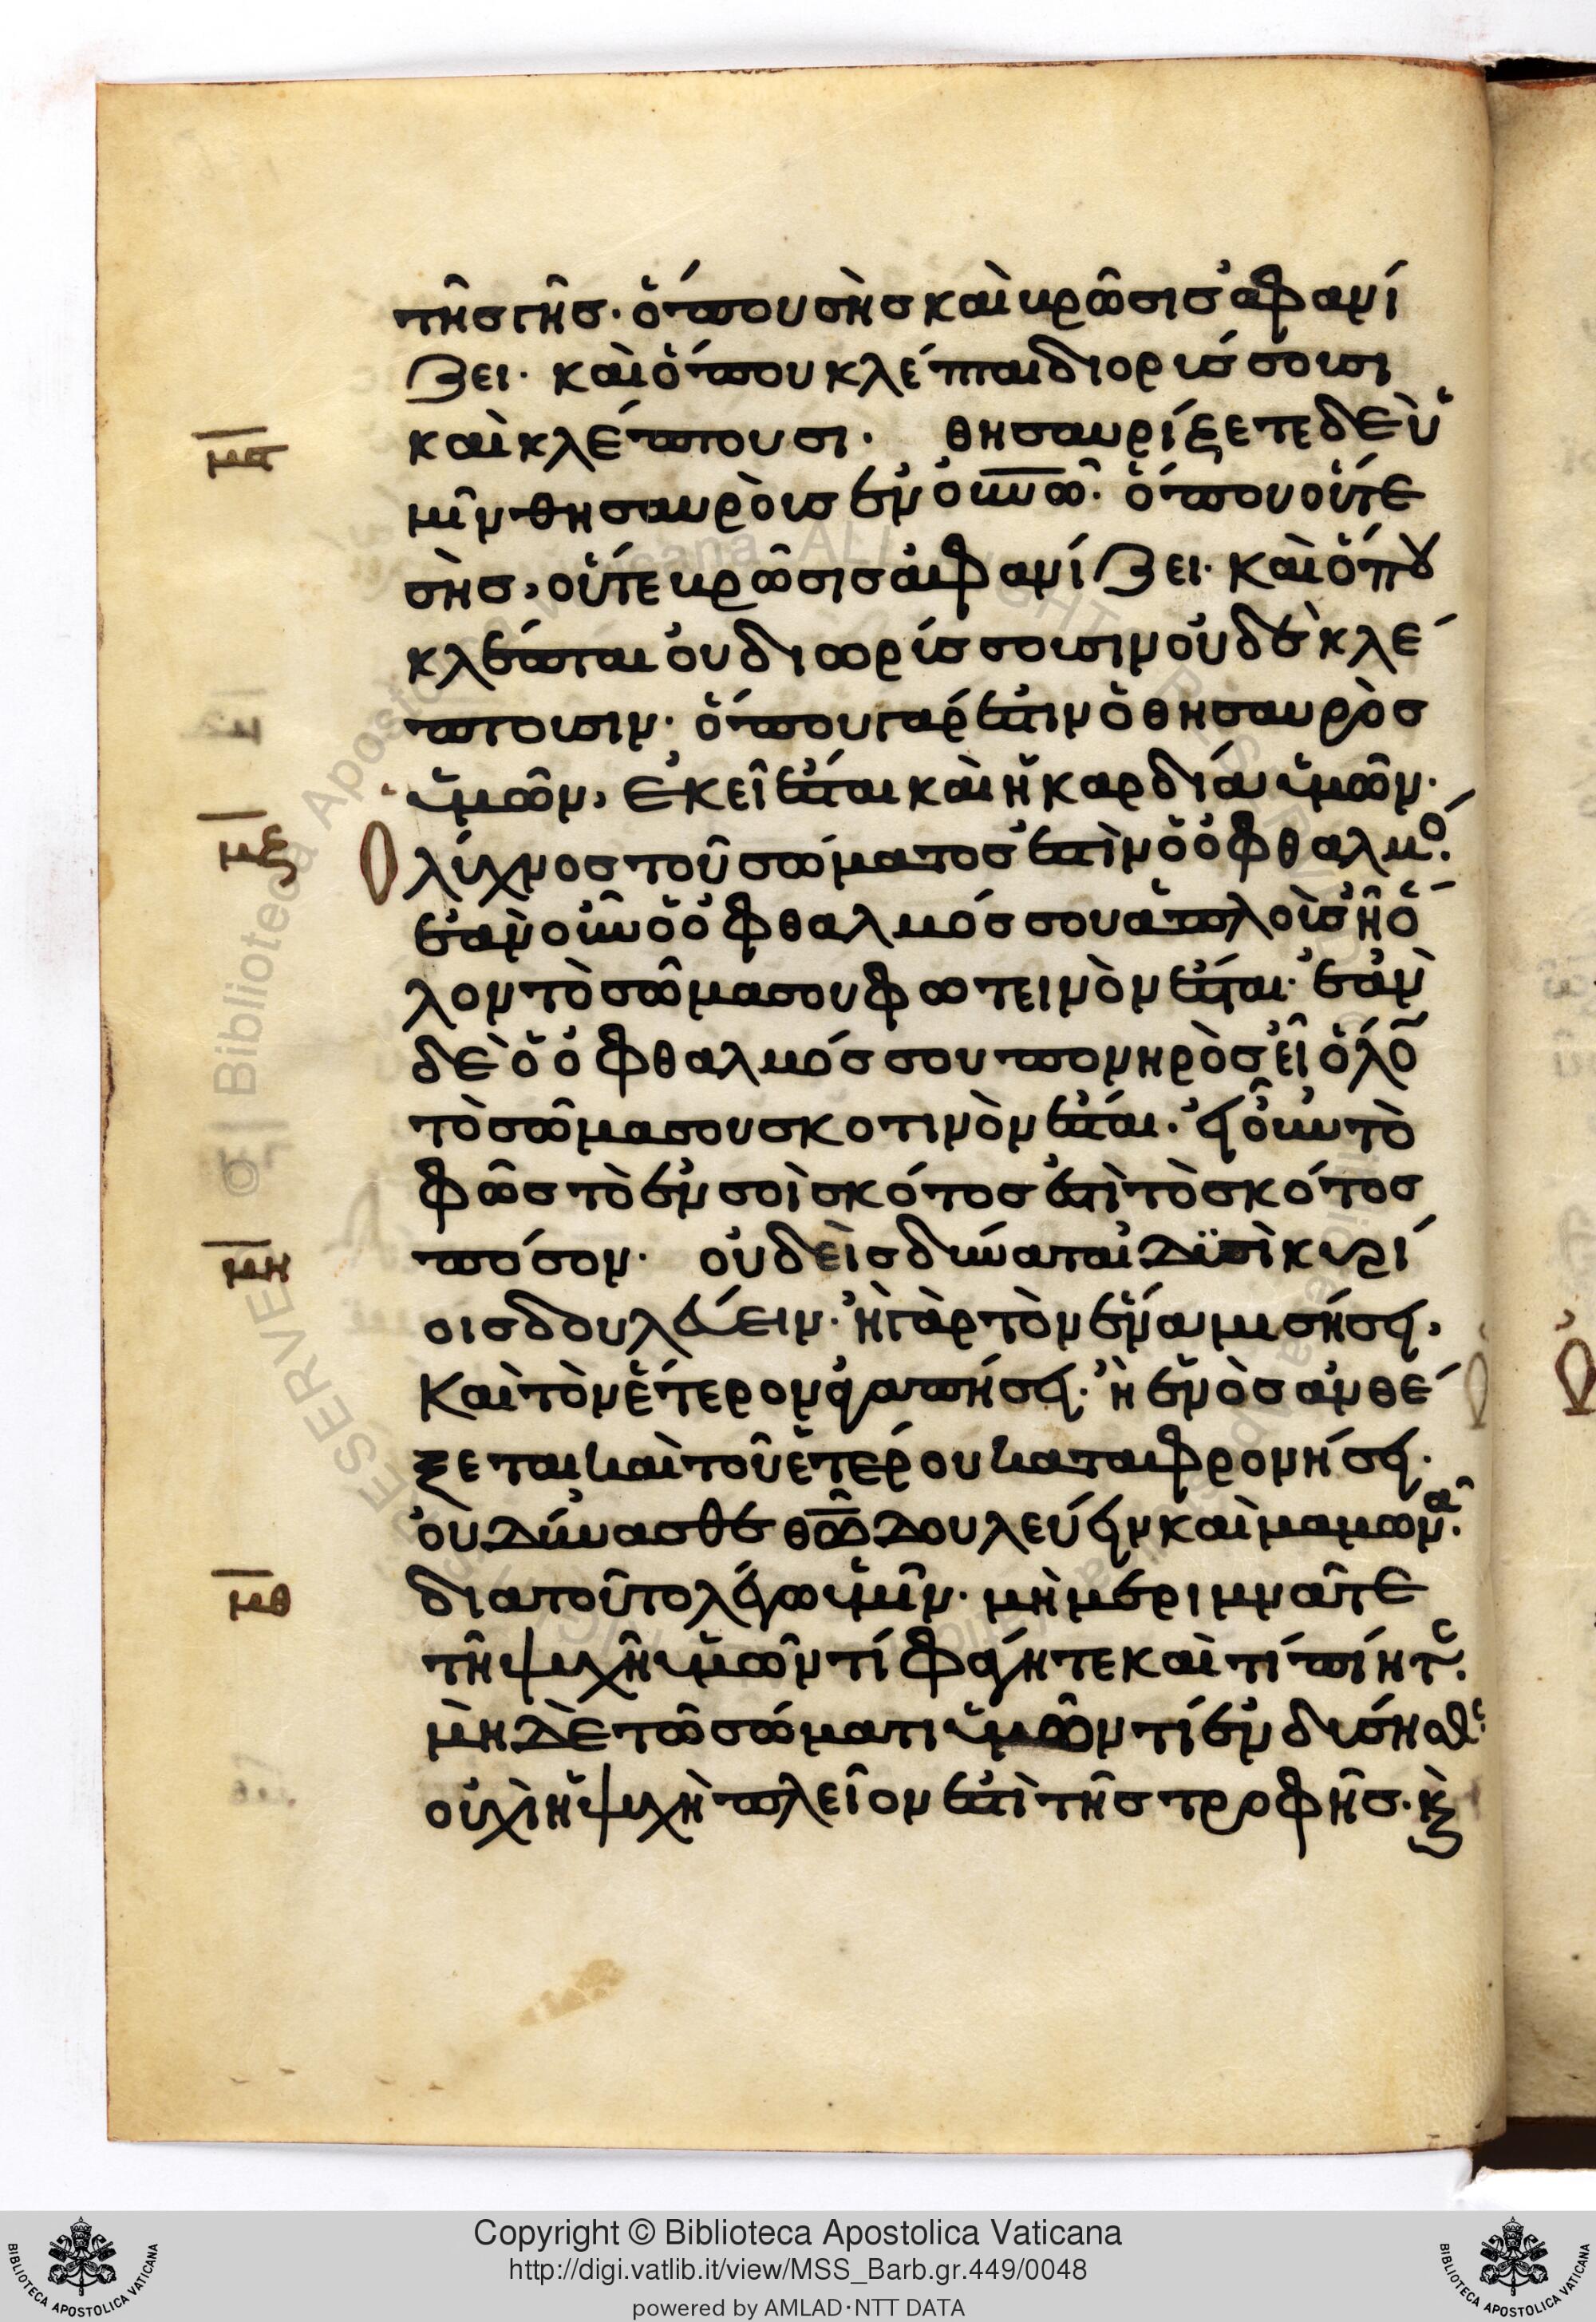 τῆς γῆς· ὅπου σὴς καὶ βρῶσις ἀφανί
ζει· καὶ ὅπου κλέπται διορύσσουσι
μγ καὶ κλέπτουσι· θησαυρίζετε δὲ ὑ
μῖν θησαυροὺς ἐν οὐνῶ· ὅπου οὔτε
σὴς, οὔτε βρῶσις ἀφανίζει· καὶ ὅπου
κλέπται οὐ διωρύσσουσιν οὐδὲ κλέ
πτουσιν· ὅπου γάρ ἐστιν ὁ θησαυρὸς
ὑμῶν, ἐκεῖ ἔσται καὶ ἡ καρδία ὑμῶν·
Ο λύχνος τοῦ σώματος ἐστὶν ὁ ὀφθαλμό·
ἐὰν οὖν ὁ ὀφθαλμός σου ἁπλοῦς ἦ ὅ
λον τὸ σῶμα σου φωτεινὸν ἔσται· ἐὰν
δὲ ὁ ὀφθαλμός σου πονηρὸς εἶ ὅλο
τὸ σῶμα σου σκοτινὸν ἔσται· εἰ οὖν τὸ
φῶς τὸ ἐν σοὶ σκότος ἐστὶ τὸ σκότος
μη πόσον· οὐδεὶς δύναται δυσὶ κυρί
οις δουλεύειν· ἢ γὰρ τὸν ἕνα μισήσει,
καὶ τὸν ἕτερον ἀγαπήσει· ἢ ἑνὸς ἀνθέ
ξεται καὶ τοῦ ἑτέρου καταφρονήσει·
οὐ δύνασθε θῶ δουλεύειν καὶ μαμωνᾶ·
μθ διατοῦτο λέγω ὑμῖν· μὴ μεριμνᾶτε
τῆ ψυχῆ ὑμῶν τί φάγητε καὶ τί πίητε·
μὴ δὲ τῶ σώματι ὑμῶν τί ἐνδύσησθε·
οὐχὶ ἡ ψυχὴ πλεῖον ἐστὶ τῆς τροφῆς· κὶ
Copyright © Biblioteca Apostolica Vaticana
http://digi.vatlib.it/view/MSS_Barb.gr.449/0048
powered by AMLAD·NTT DATA
BIBLIOTECA APOSTOLICA VATICANA
BIBLIOTECA APOSTOLICA VATICANA